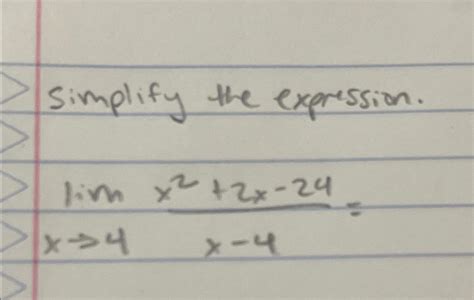 simplify the expression.
lim x² + 2x - 24 =
x→4 x - 4